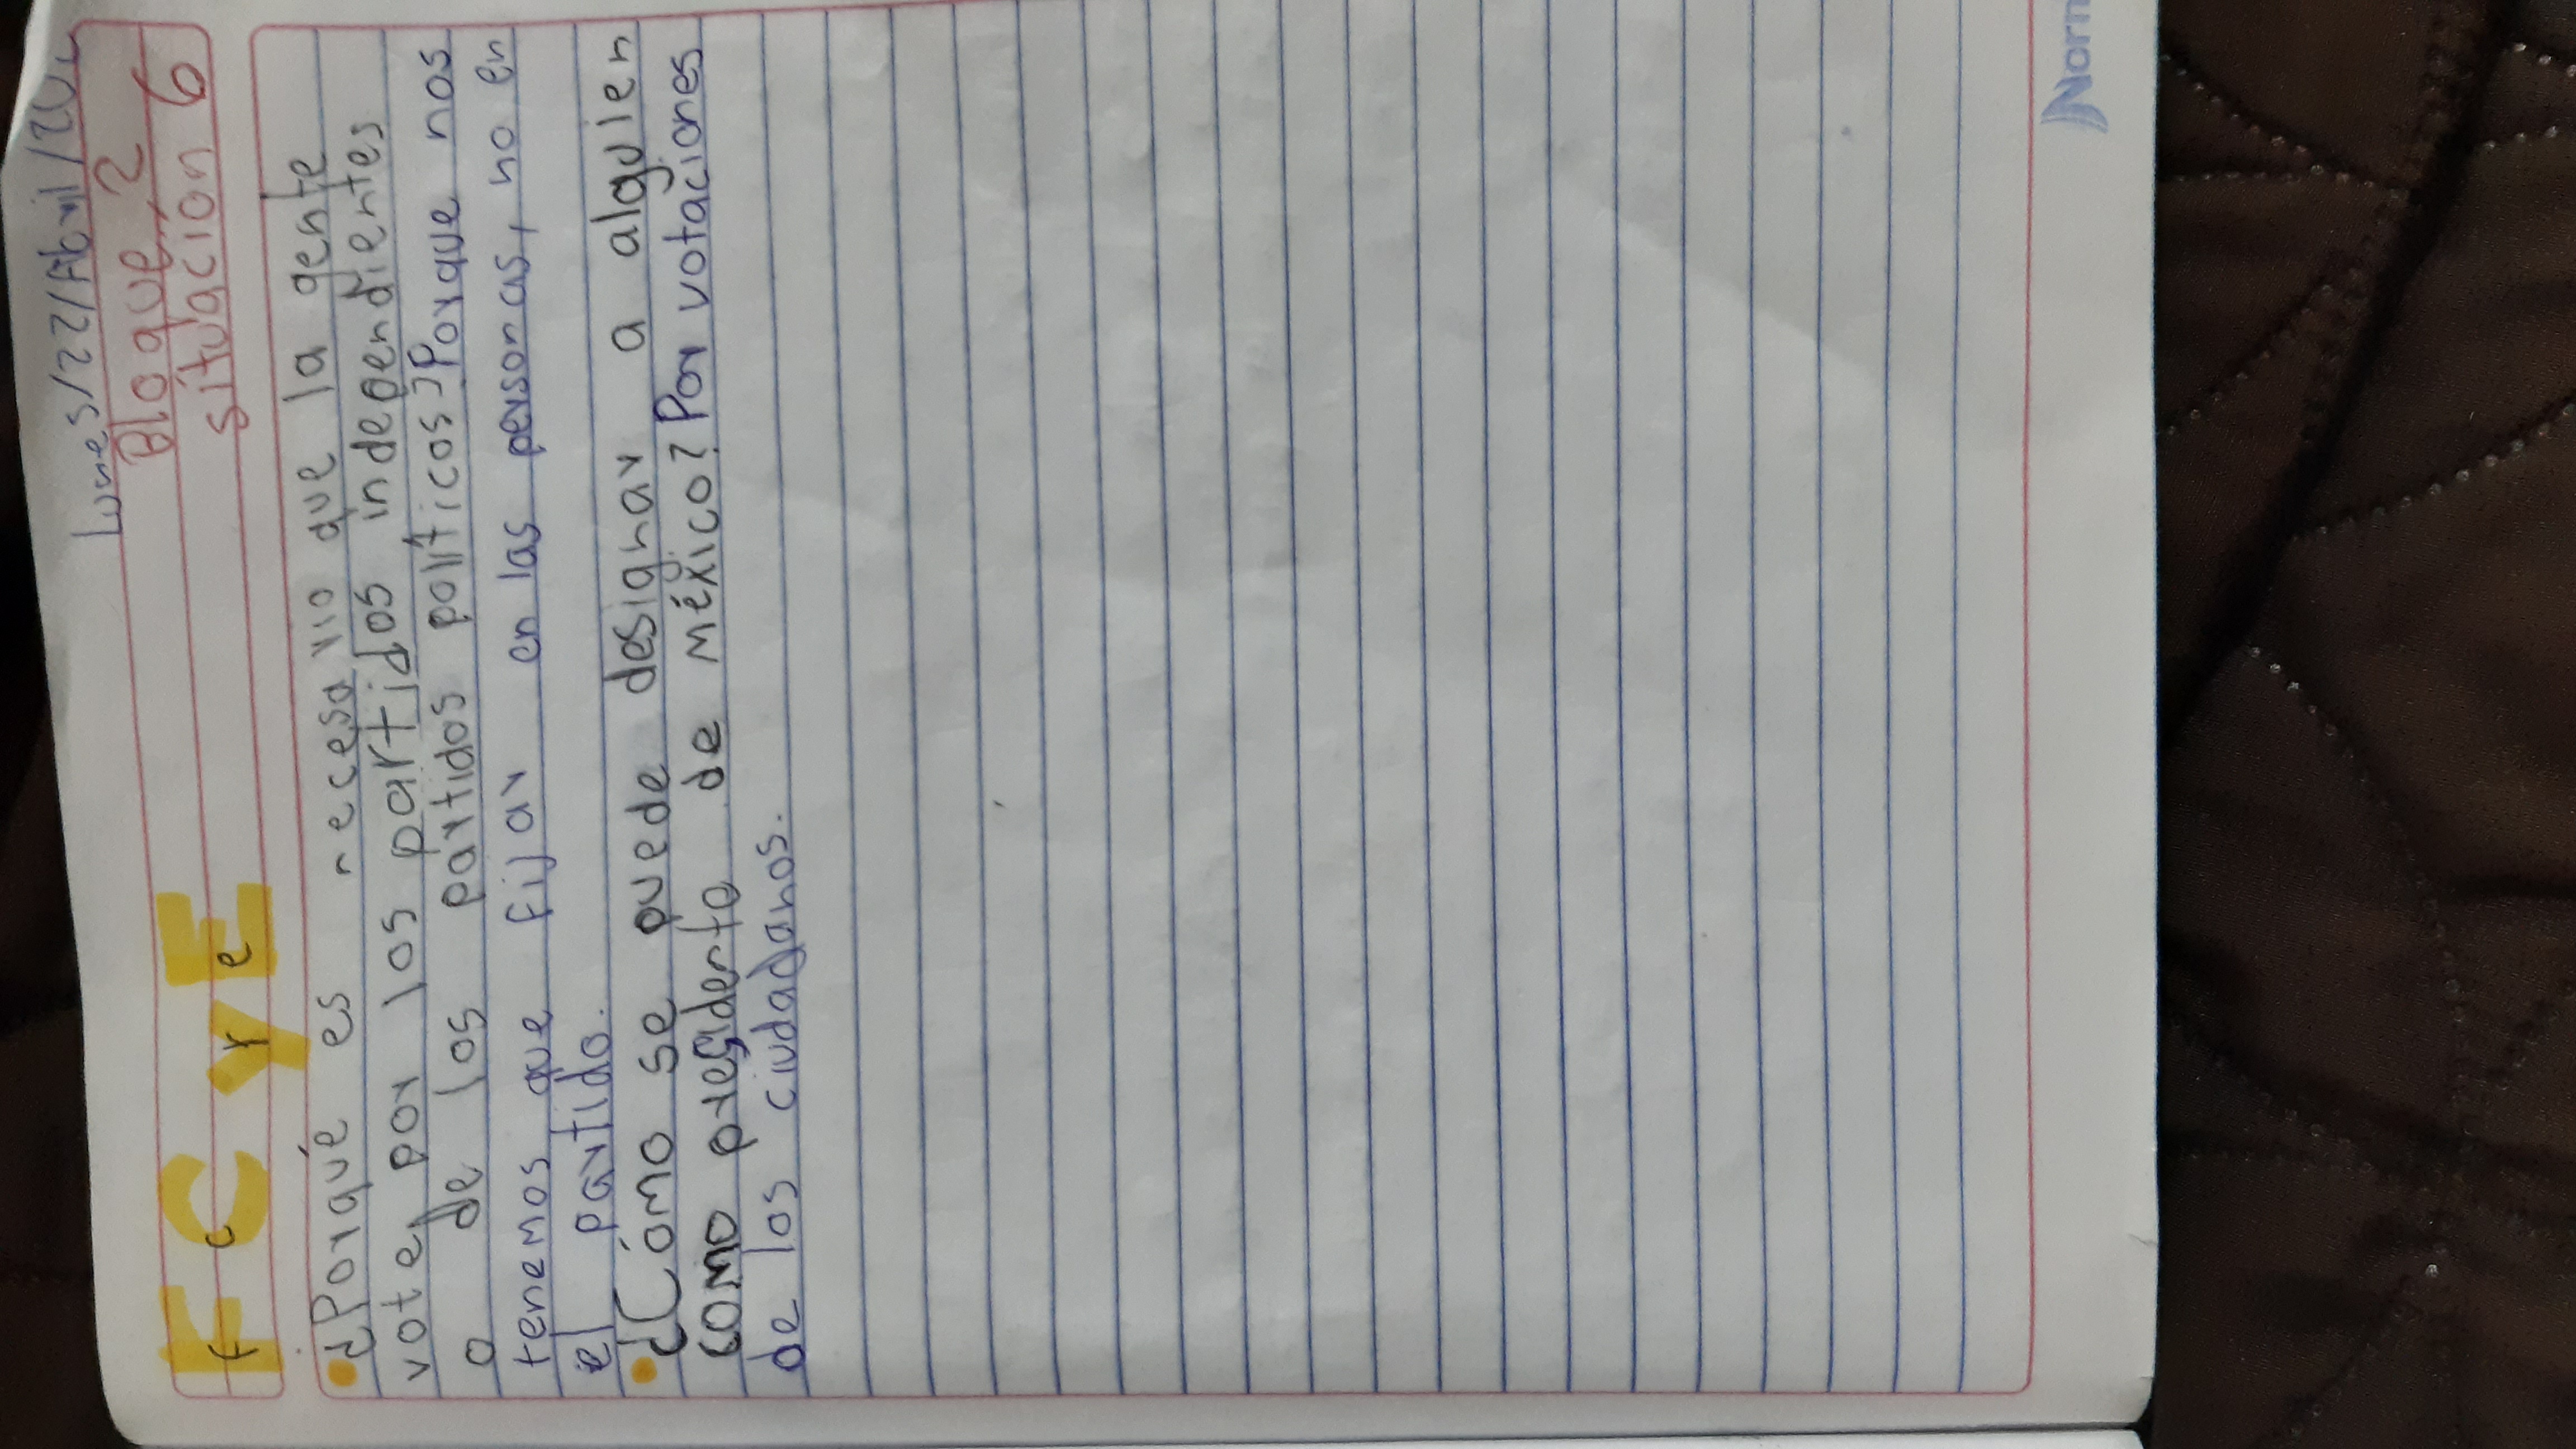 Lunes/22/Abril/20
Bloque 2
situación 6
F C y E
f c y e
¿Porqué es necesario que la gente
vote por los partidos independientes
o de los partidos políticos? Porque nos
tenemos que fijar en las personas, no en
el partido.
¿Cómo se puede designar a alguien
como presidente de México? Por votaciones
de los ciudadanos.
Norm